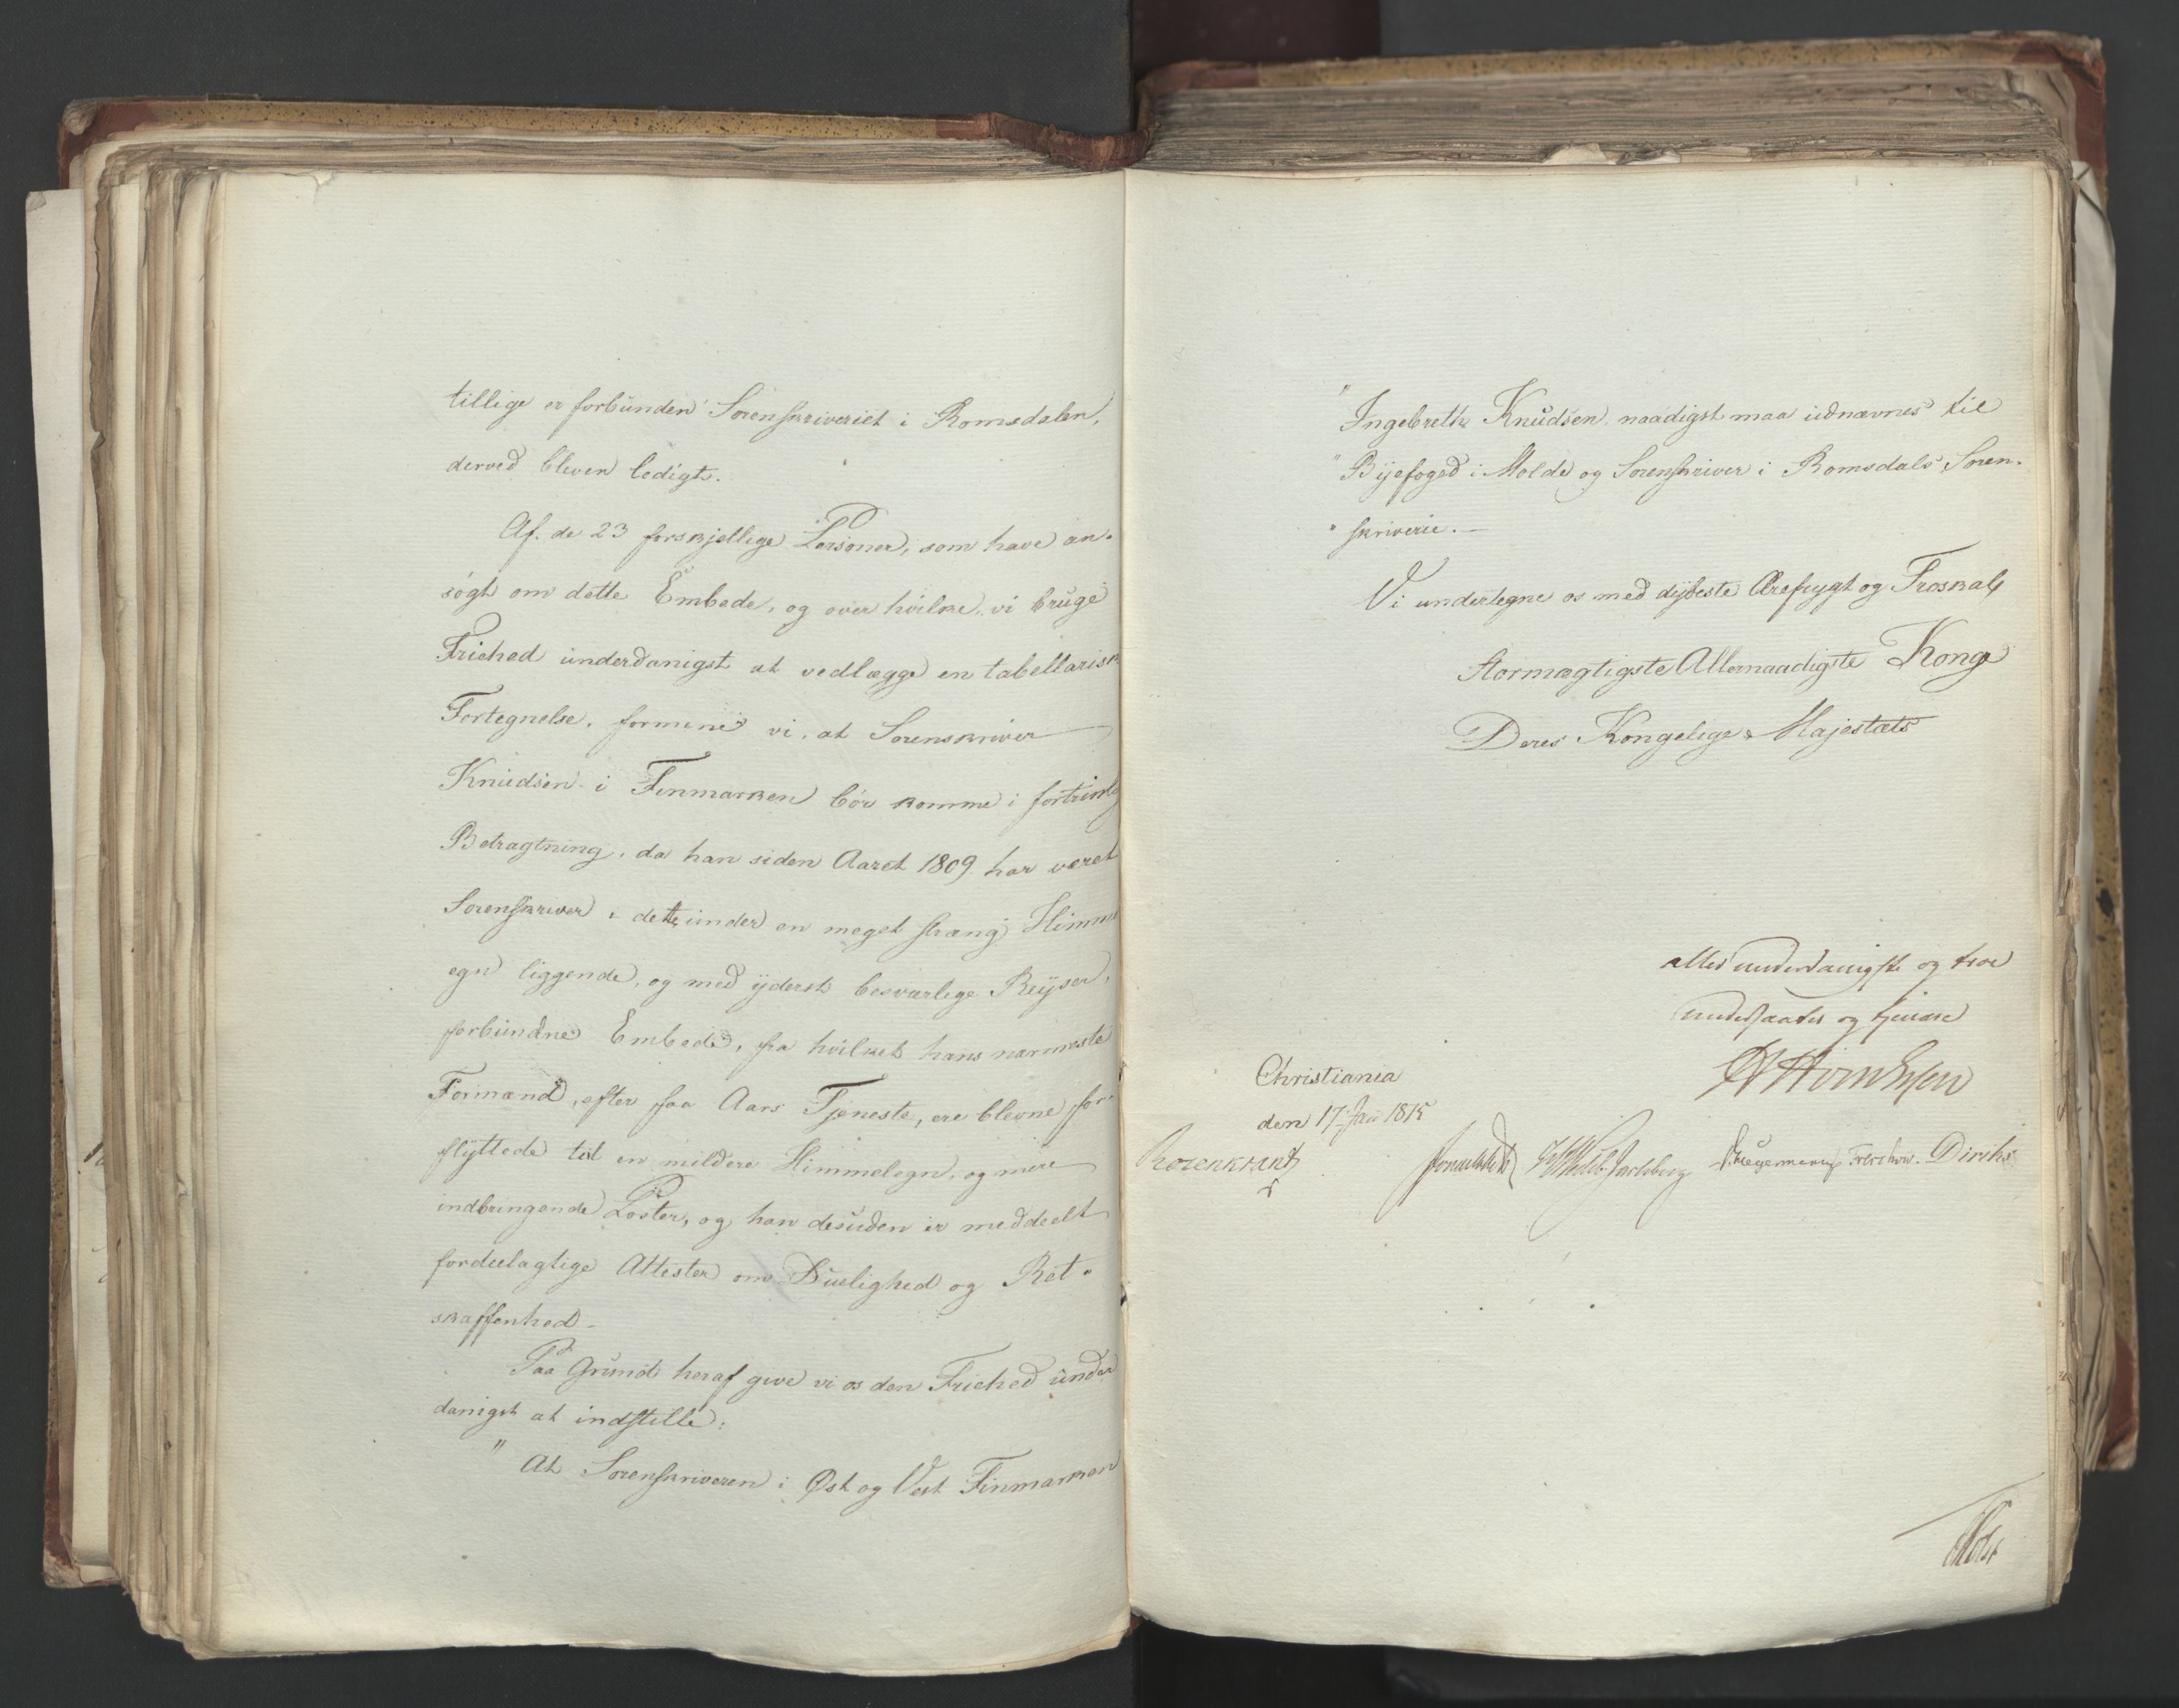 tillige er forbunden Sorenskriveriet i Romsdalen,
derved bleven ledigt.
Af de 23 forskjellige Personer, som have an-
søgt om dette Embede, og over hvilke vi bruge
Friehed underdanigst at vedlægge en tabellarisk
Fortegnelse, formene vi, at Sorenskriver
Knudsen i Finmarken bør komme i fortrinlig
Betragtning, da han siden Aaret 1809 har været
Sorenskriver i dette under en meget stræng Himmel
egn liggende, og med yderst besværlige Reyser,
forbundne Embede, fra hvilket hans nærmeste
Formænd, efter faa Aars Tjeneste, ere blevne for-
flyttede til en mildere Himmelegn, og mere
indbringende Poster, og han desuden er meddeelt
fordeelagtige Attester om Duelighed og Ret-
skaffenhed.
Paa Grund heraf give vi os den Friehed under
danigst at indstille:
" At Sorenskriveren i Øst og Vest Finmarken
" Ingebreth Knudsen naadigst maa udnævnes til
" Byefoged i Molde og Sorenskriver i Romsdals Soren-
" skriverie. —
Vi undertegne os med dybeste Ærefrygt og Troskab
Stormægtigste Allernaadigste Konge
Deres Kongelige Majestæts
allerunderdanigste og troe
undersaatter og tjenere
Christiania
den 17 Jan 1815
Rosenkrantz
Sommerhielm
Diriks
Holst